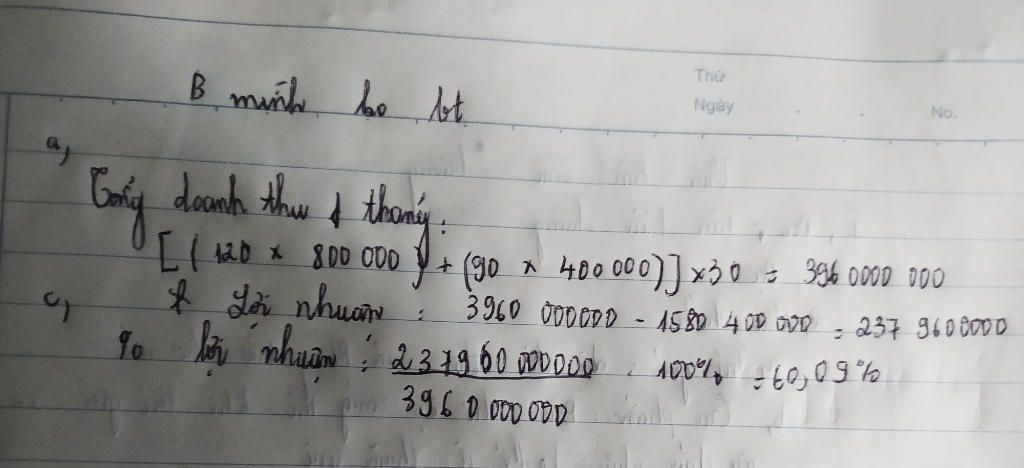 Thứ
Ngày
No.
B
a,
Tổng doanh thu 1 tháng:
[(120 x 800 000) + (90 x 400 000)] x 30 = 396 0000 000
c, * Lợi nhuận : 3960 000000 - 1580 400 000 = 237 9600000
% lợi nhuận : 237960 000000 . 100% = 60,09%
3960 000000